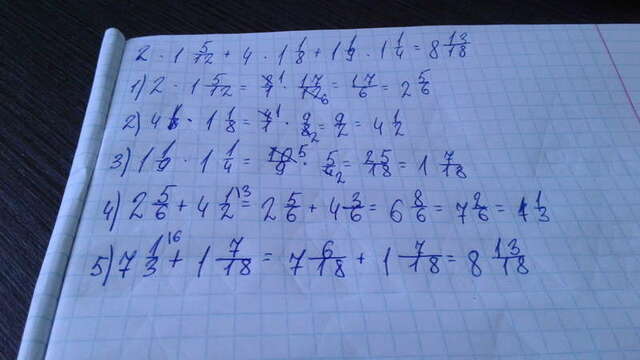 2 · 1 5/12 + 4 · 1 1/8 + 1 1/9 · 1 1/4 = 8 13/18
1) 2 · 1 5/12 = 2/1 · 17/12 6 = 17/6 = 2 5/6
2) 4 · 1 1/8 = 4/1 · 9/8 2 = 9/2 = 4 1/2
3) 1 1/9 · 1 1/4 = 10/9 5 · 5/4 2 = 25/18 = 1 7/18
4) 2 5/6 + 4 1/2 \3 = 2 5/6 + 4 3/6 = 6 8/6 = 7 2/6 = 7 1/3
5) 7 1/3 \6 + 1 7/18 = 7 6/18 + 1 7/18 = 8 13/18